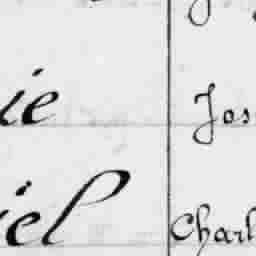 ie Jos
iel Charl